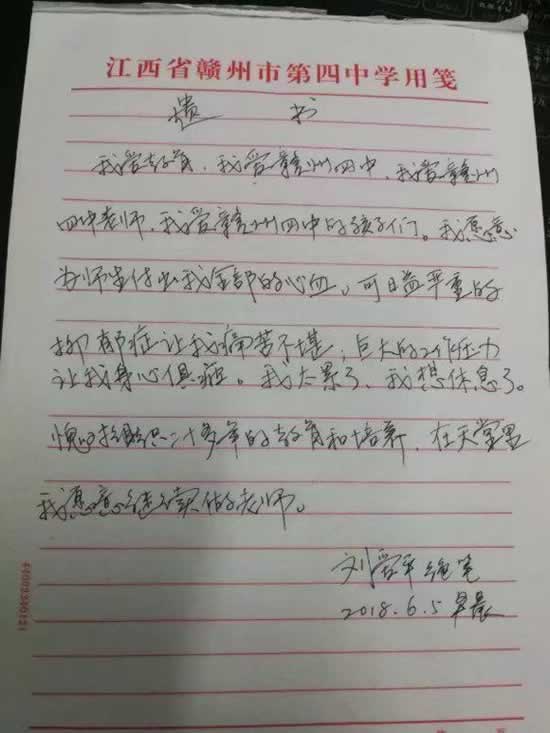 江西省赣州市第四中学用笺
遗 书
我爱教育，我爱赣州四中，我爱赣州
四中老师，我爱赣州四中的孩子们。我愿意
为师生付出我全部的心血。可日益严重的
抑郁症让我痛苦不堪；巨大的工作压力
让我身心俱疲。我太累了、我想休息了。
愧对组织二十多年的教育和培养，在天堂里
我愿意继续做老师。
刘爱平绝笔
2018.6.5早晨